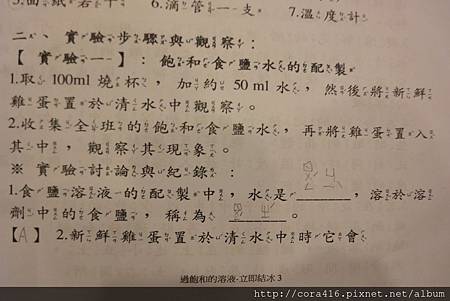 5.面紙若干 6.滴管一支 7.溫度計
二、實驗步驟與觀察：
【實驗一】：飽和食鹽水的配製
1.取 100ml 燒杯，加約 50 ml 水，然後將新鮮
雞蛋置於清水中觀察。
2.收集全班的飽和食鹽水，再將雞蛋置入
其中，觀察其現象。
※ 實驗討論與紀錄：
1.食鹽溶液的配製中，水是______，溶於溶
劑中的食鹽，稱為______。
【A】 2.新鮮雞蛋置於清水中時它會
過飽和的溶液-立即結冰 3
http://cora416.pixnet.net/album